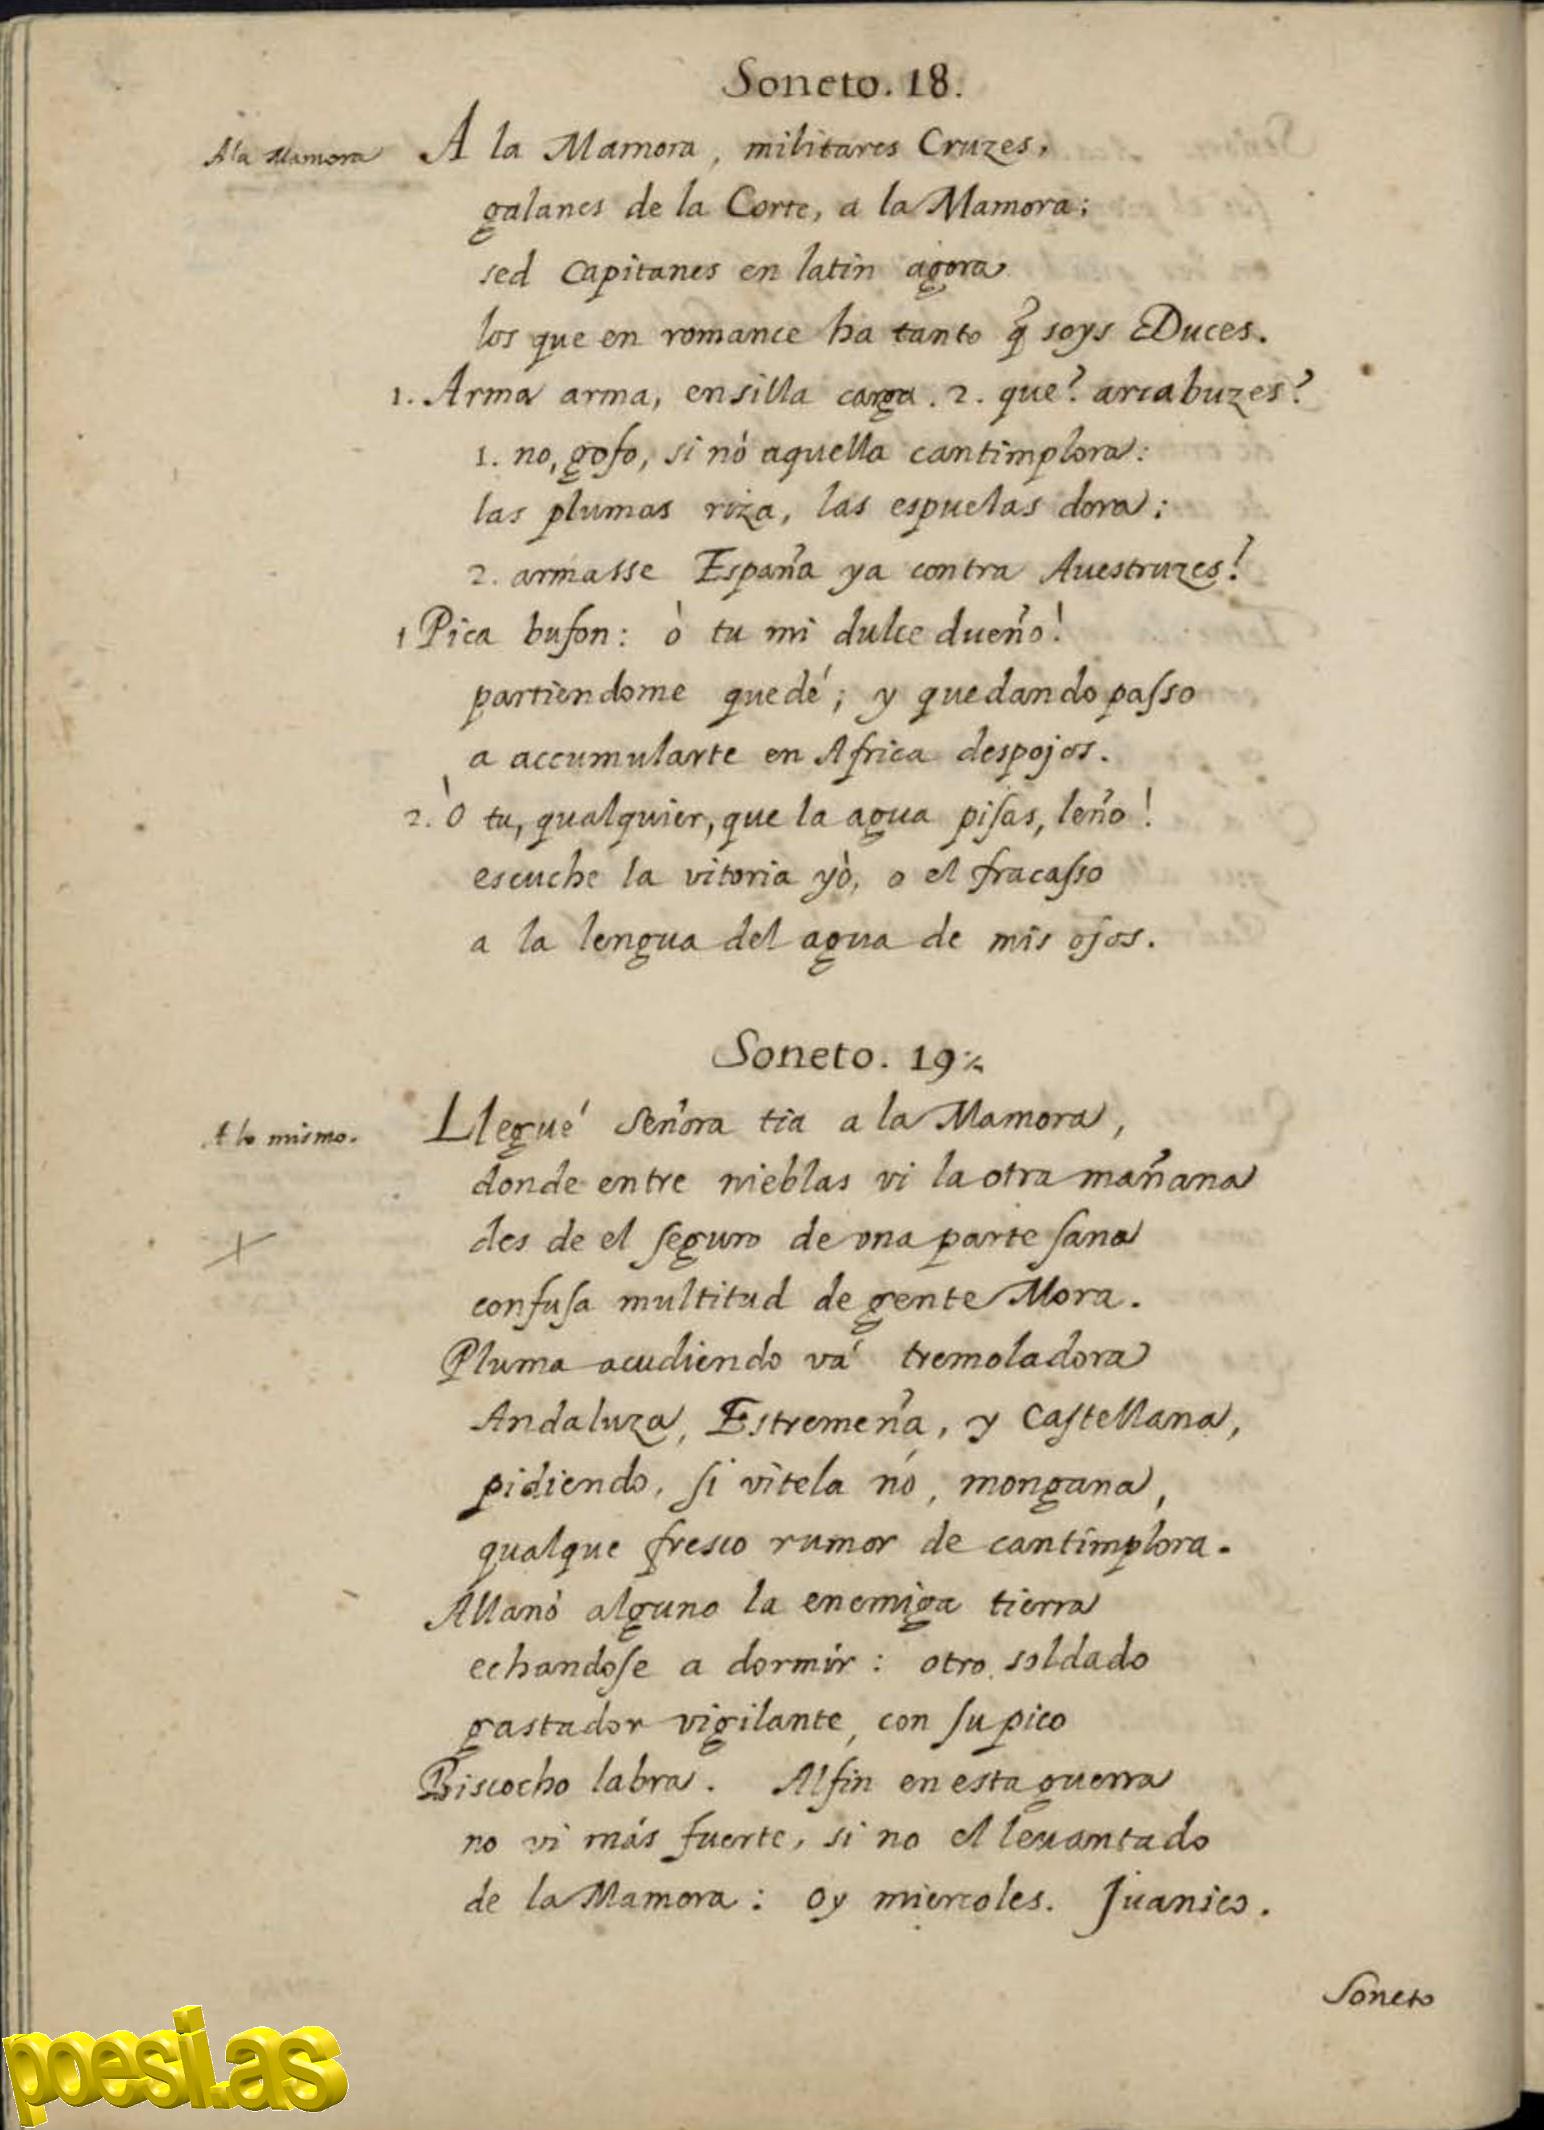 Soneto. 18.
A la Mamora
A la Mamora, militares Cruzes,
galanes de la Corte, a la Mamora;
sed Capitanes en latin agora
los que en romance ha tanto q̃ soys Duces.
1. Arma arma, ensilla carga. 2. que? arcabuzes?
1. no, gofo, si nò aquella cantimplora:
las plumas riza, las espuelas dora;
2. armasse España ya contra Auestruzes!
1 Pica bufon: ò tu mi dulce dueño!
partiendome quedé; y quedando paſso
a accumularte en Africa despojos.
2. Ò tu, qualquier, que la agua piſas, leño!
escuche la vitoria yò, o el fracaſso
a la lengua del agua de mis ojos.
Soneto. 19
A lo mismo.
Llegué Señora tia a la Mamora,
donde entre nieblas vi la otra mañana
des de el ſeguro de vna parte ſana
confuſa multitud de gente Mora.
Pluma acudiendo vá tremoladora
Andaluza, Estremeña, y Caſtellana,
pidiendo, ſi vitela nó, mongana,
qualque fresco rumor de cantimplora.
Allanò alguno la enemiga tierra
echandoſe a dormir: otro soldado
gastador vigilante, con ſu pico
Biscocho labra. Alfin en esta guerra
no vi más fuerte, si no el leuantado
de la Mamora: oy miercoles. Juanico.
Soneto
poesi.as